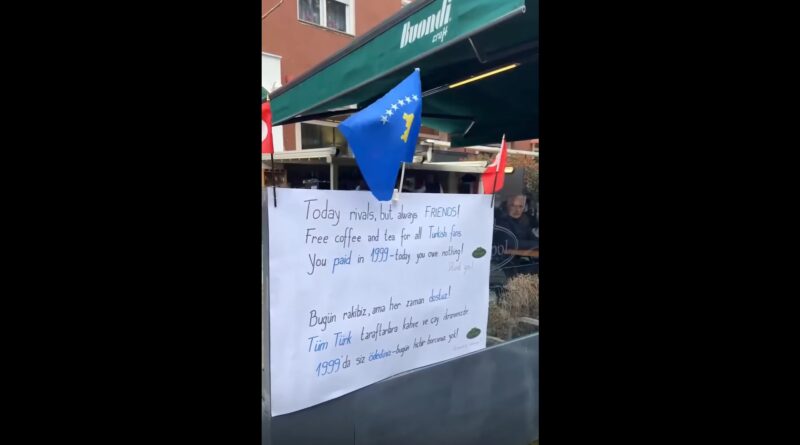 Buondi
craft
Today rivals, but always FRIENDS!
Free coffee and tea for all Turkish fans
You paid in 1999-today you owe nothing!
thank you!
Bugün rakibiz, ama her zaman dostuz!
Tüm Türk taraftarlara kahve ve çay ikramımızdır
1999'da siz ödediniz-bugün hiçbir borcunuz yok!